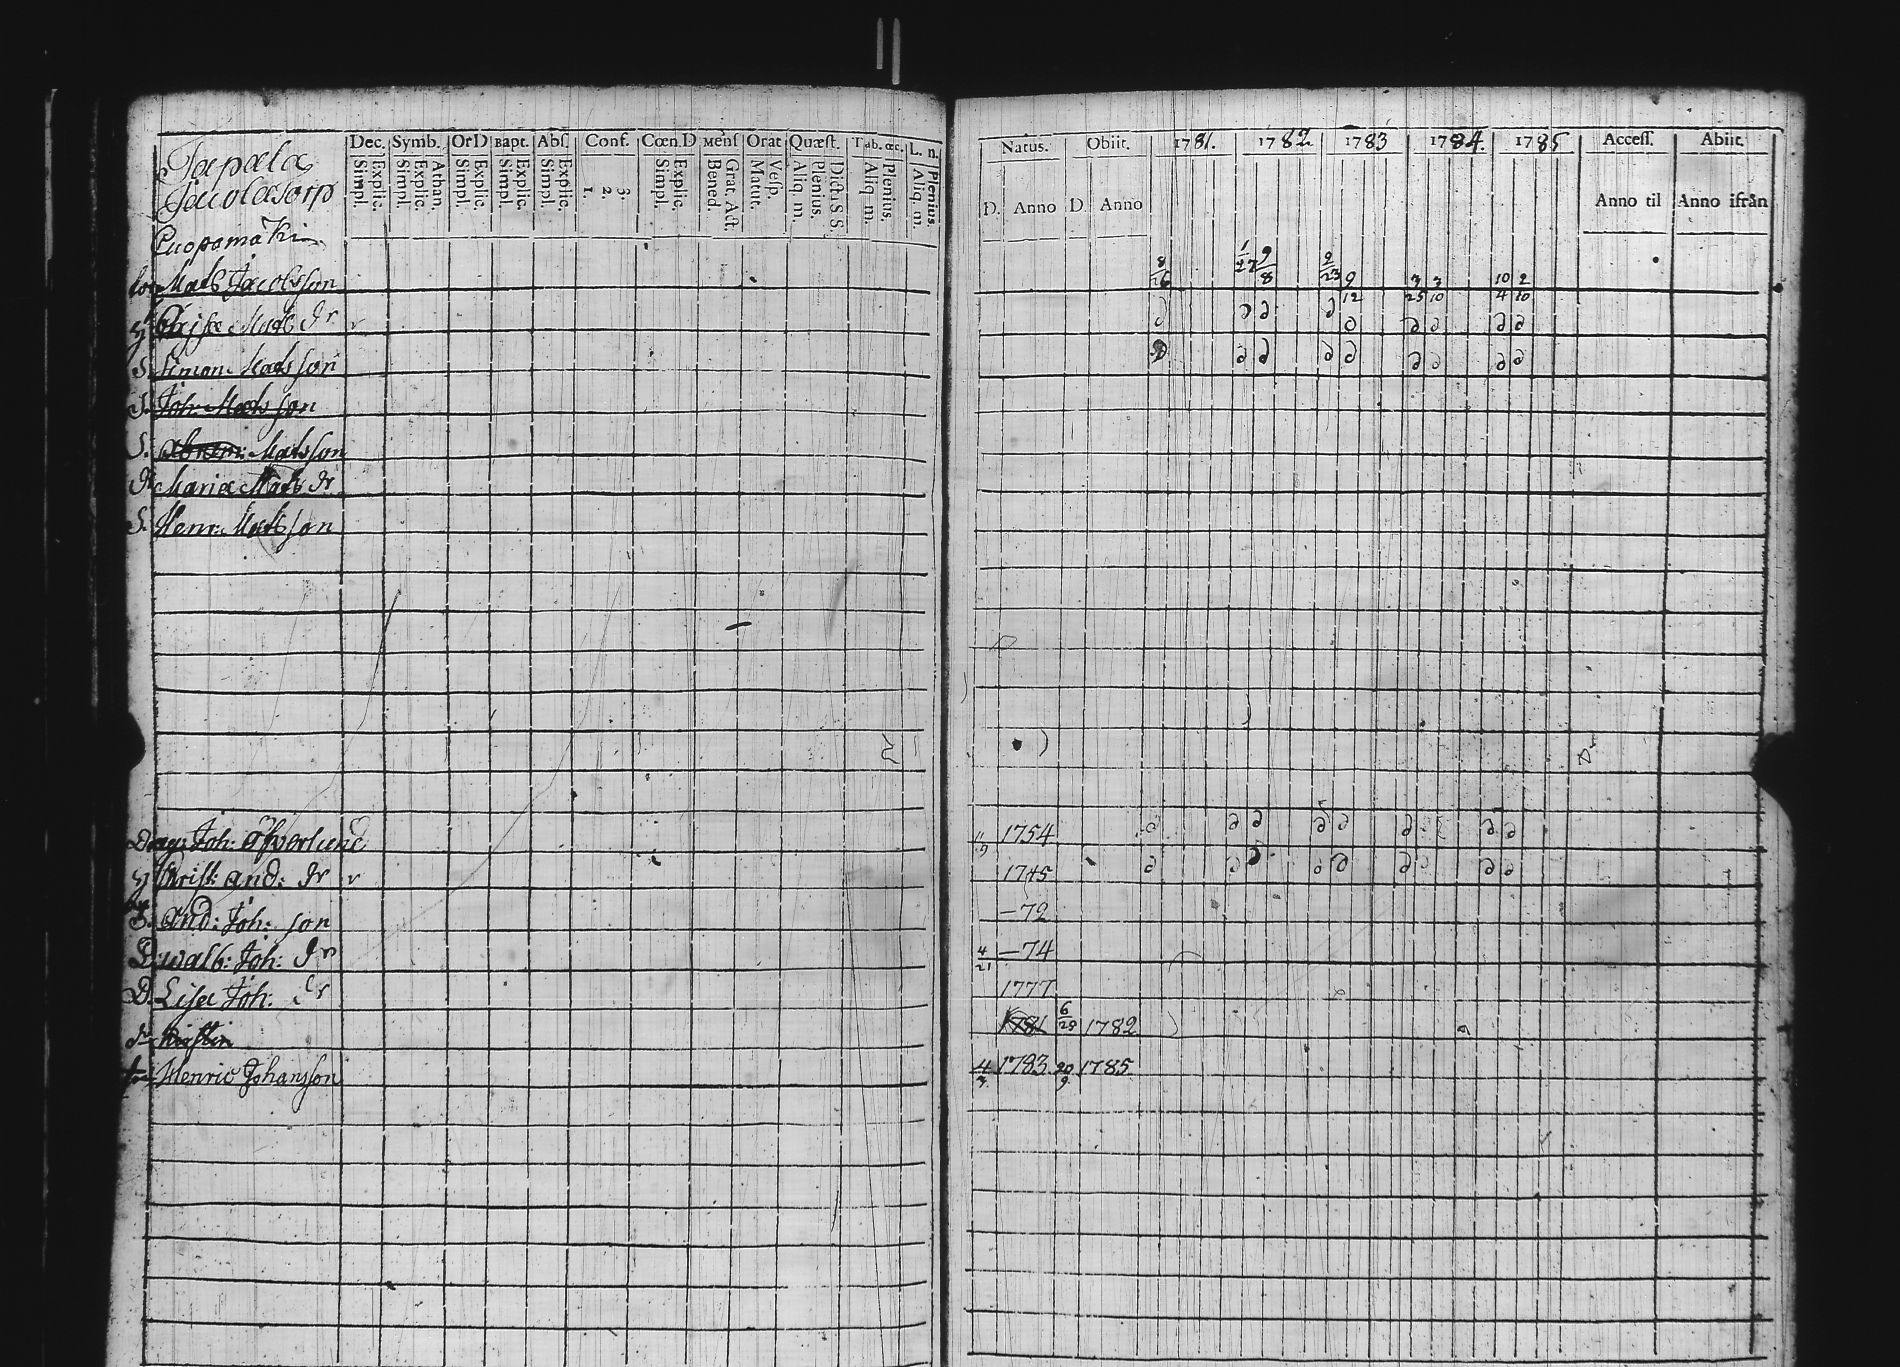 Dec. Symb. OrD Bapt. Abs. Conf. Cœn.D Mens Orat Quæst. Tab. œc. L. n.
Simpl. Explic. Simpl. Explic. Athan. Simpl. Explic. Simpl. Explic. Simpl. Explic. 1. 2. 3. Simpl. Explic. Bened. Grat. Act. Matut. Vesp. Aliq. m. Plenius. Dicta S S. Aliq. m. Plenius. Aliq. m. Plenius.
Natus. Obiit. 1781. 1782 1783 1784. 1785 Access. Abiit.
D. Anno D. Anno Anno til Anno ifrån
Tapala
Jacolasorp
Cuopamäki
Mats Jacobsson 8/26 1/27 9/8 2/23 9/12 3/25 3/10 10/4 2/10
Mats dr v
S. Simon Matsson
S. Joh: Matsson
S. Matsson
D. Maria Mats dr
S. Henr: Matsson
Drag: Joh: Öfverlund 1754
Christ: And: dr v 1745
S. And: Joh: son —72
D. Walb: Joh: dr 4/21 —74
D. Lisa Joh: dr 1777
dr Kirstin 1781 6/29 1782
Henric Johansson 4/3. 1783 20/9. 1785